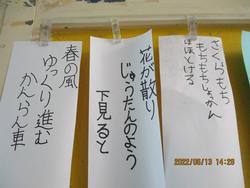 さくらもち
もちもちしょっかん
ほほとける
花が散り
じゅうたんのよう
下見ると
春の風
ゆっくり進む
かんらん車
2022/05/13 14:28